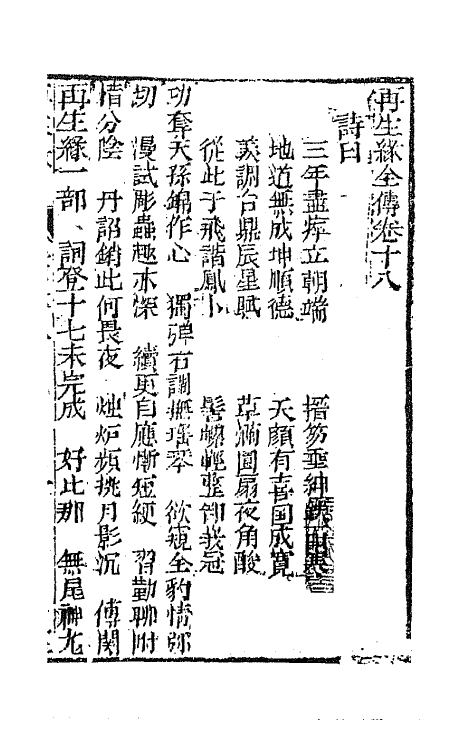 再生緣全傳卷十八
詩曰
三年盡瘁立朝端　搢笏垂紳
地道無成坤順德　天顏有喜国成寬
羙調台鼎辰星賦　草滿圓扇夜角酸
從此于飛諧鳳卜　髻螺輕整卸峩冠
功奪天孫錦作心　獨弹右調撫瑶琴　欲窺全豹情弥
切　漫試彫蟲趣亦深　續更自應慚短綆　習勤聊附
惜分陰　丹詔銷此何畏夜　燭炉頻挑月影沉　傅閱
再生緣一部、詞登十七未完成　好比那　無尾神尨